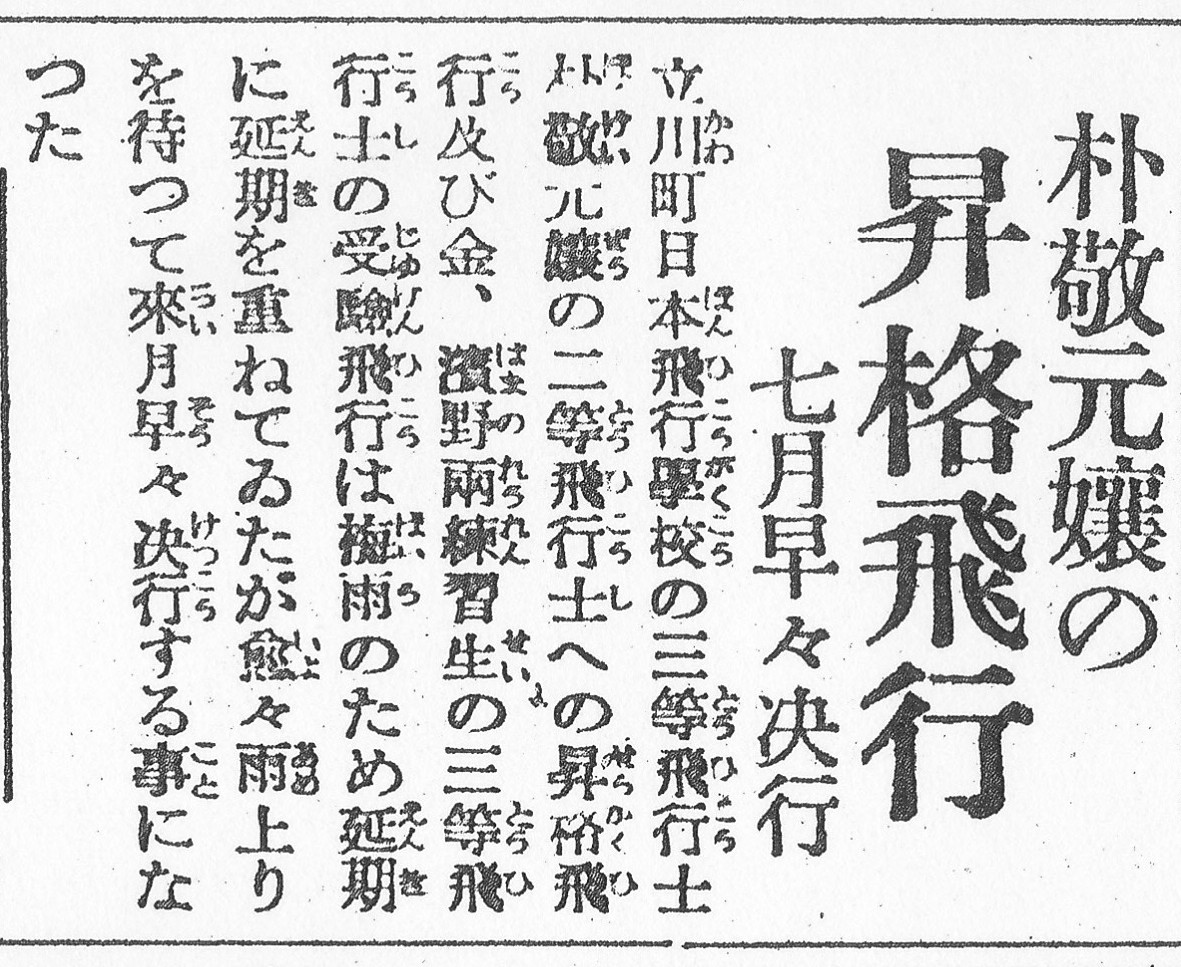 朴敬元孃の
昇格飛行
七月早々决行
立川町日本飛行學校の三等飛行士
朴敬元孃の二等飛行士への昇格飛
行及び金、濱野兩練習生の三等飛
行士の受驗飛行は梅雨のため延期
に延期を重ねてゐたが愈々雨上り
を待つて來月早々决行する事にな
つた